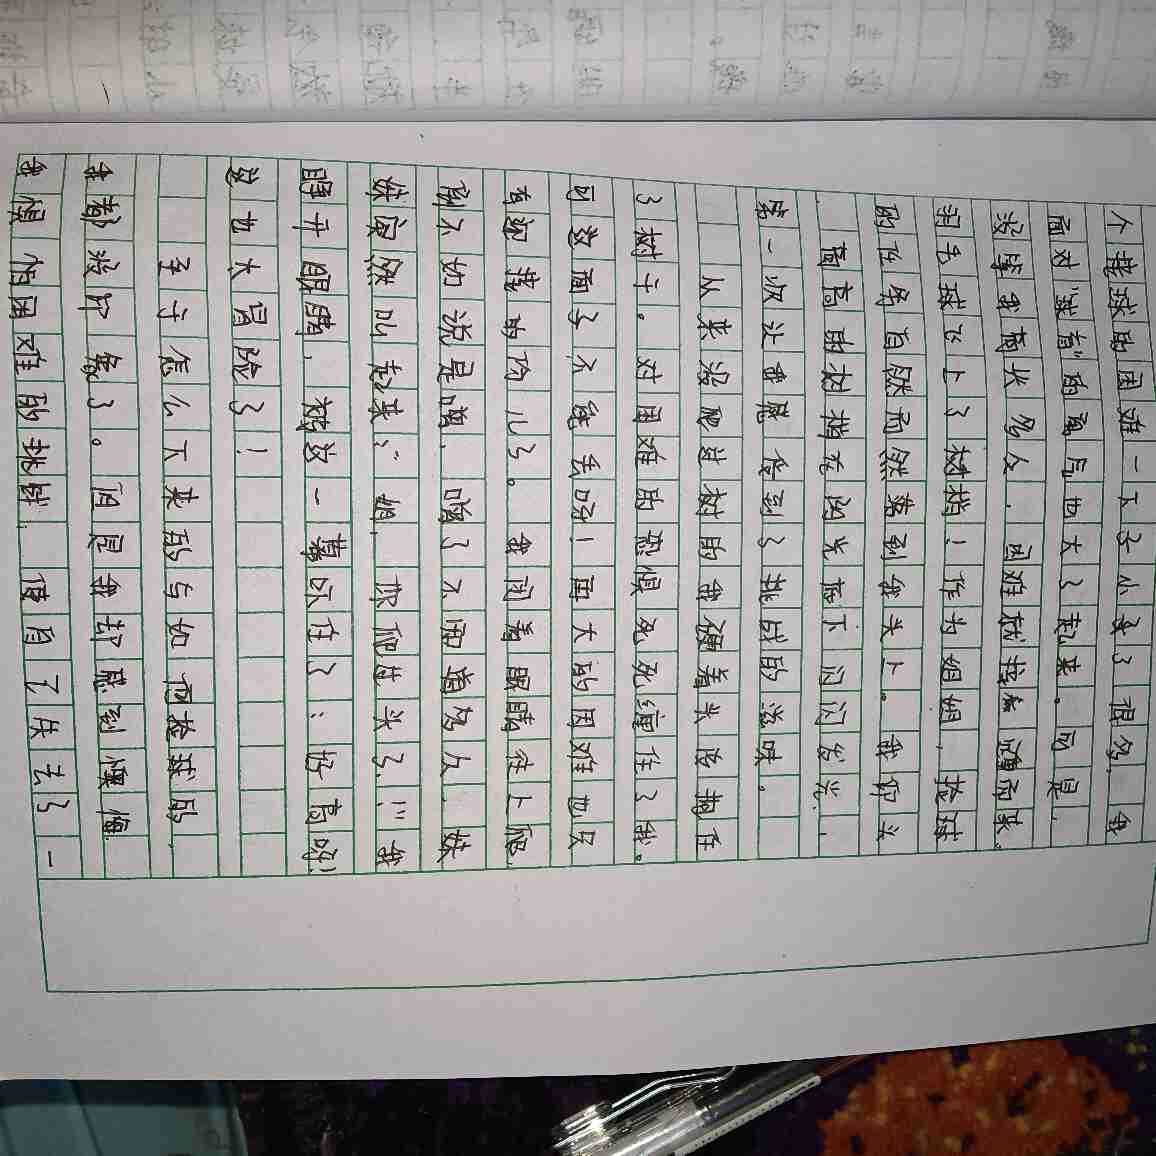 个捡球的困难一下子小多了很多,我
面对 的 也大了起来。可是,
没等我高兴多久,困难就接踵而来。
羽毛球飞上了树梢!作为姐姐,捡球
的任务自然而然落到我头上。我仰头
高高的树梢在阳光照下闪闪发光,
第一次让我感受到了挑战的滋味。
从来没爬过树的我硬着头皮抱住
了树干。对困难的恐惧死死缠住了我。
可 面子不能丢呀!再大的困难也只
有迎接的份儿了。我闭着眼睛往上爬
不切说是 , 了不知道多久,妹
妹突然叫起来:“姐,你爬过头了!”我
睁开眼睛,被这一幕吓住了:好高呀!
这也太冒险了!
至于怎么下来的与如何捡球的,
我都没印象了。但是我却感到懊悔
我惧怕困难的挑战,便自了失去了一